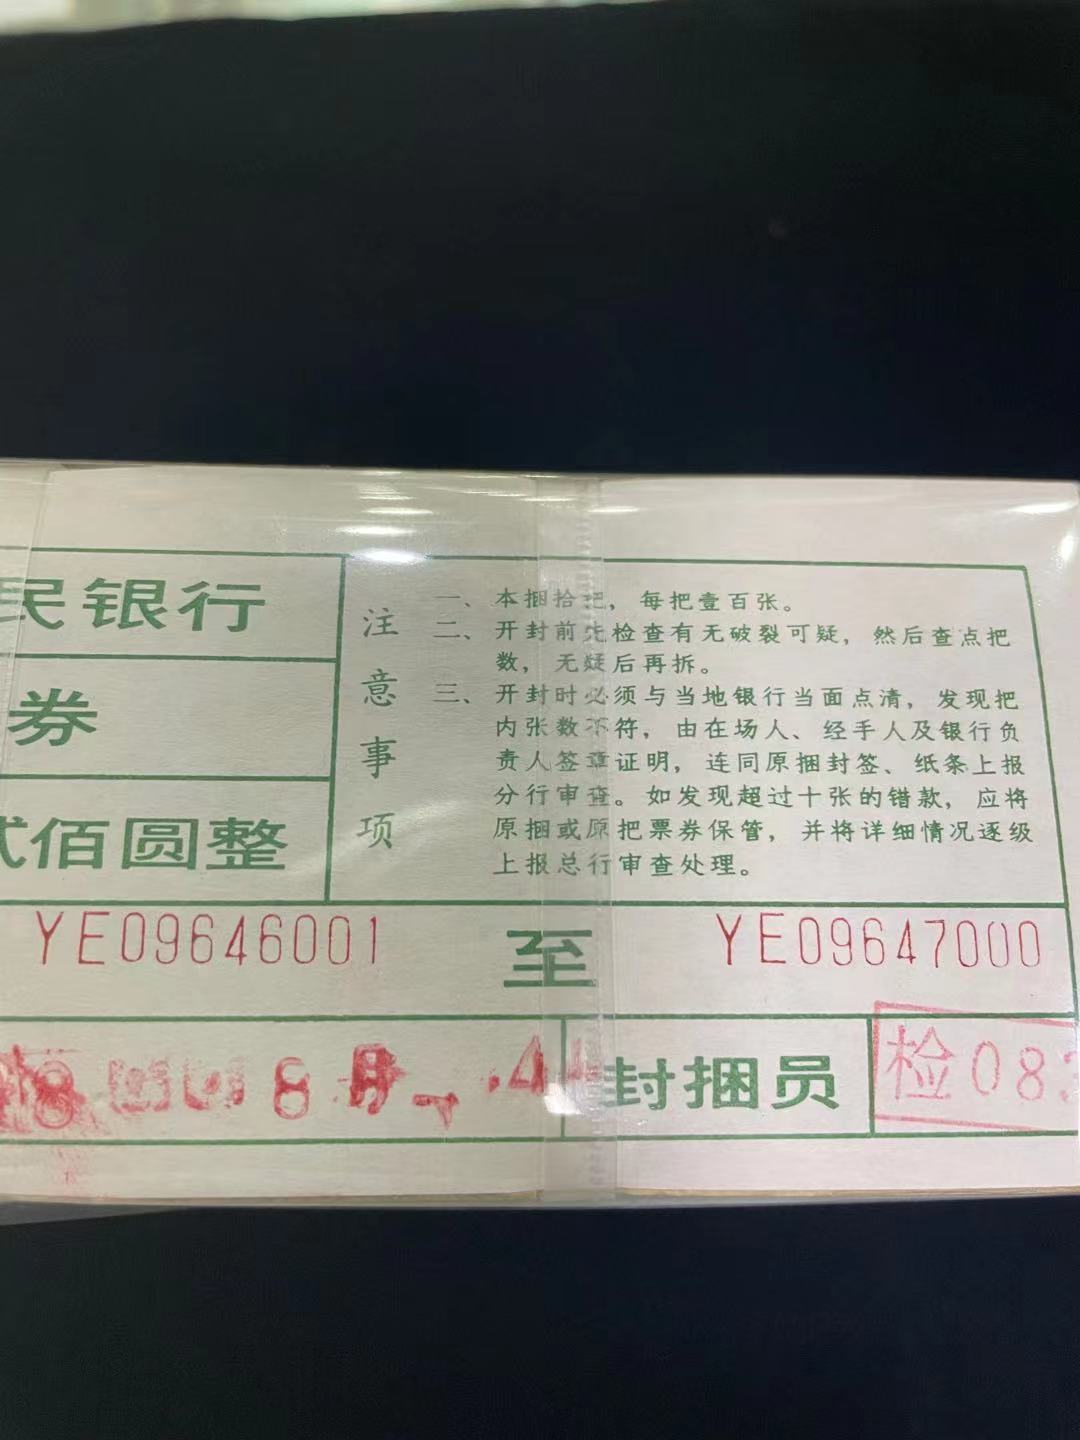 民银行
券
贰佰圆整
注意事项
一、本捆拾把，每把壹百张。
二、开封前先检查有无破裂可疑，然后查点把
数，无疑后再拆。
三、开封时必须与当地银行当面点清，发现把
内张数不符，由在场人、经手人及银行负
责人签章证明，连同原捆封签、纸条上报
分行审查。如发现超过十张的错款，应将
原捆或原把票券保管，并将详细情况逐级
上报总行审查处理。
YE09646001 至 YE09647000
封捆员 检08